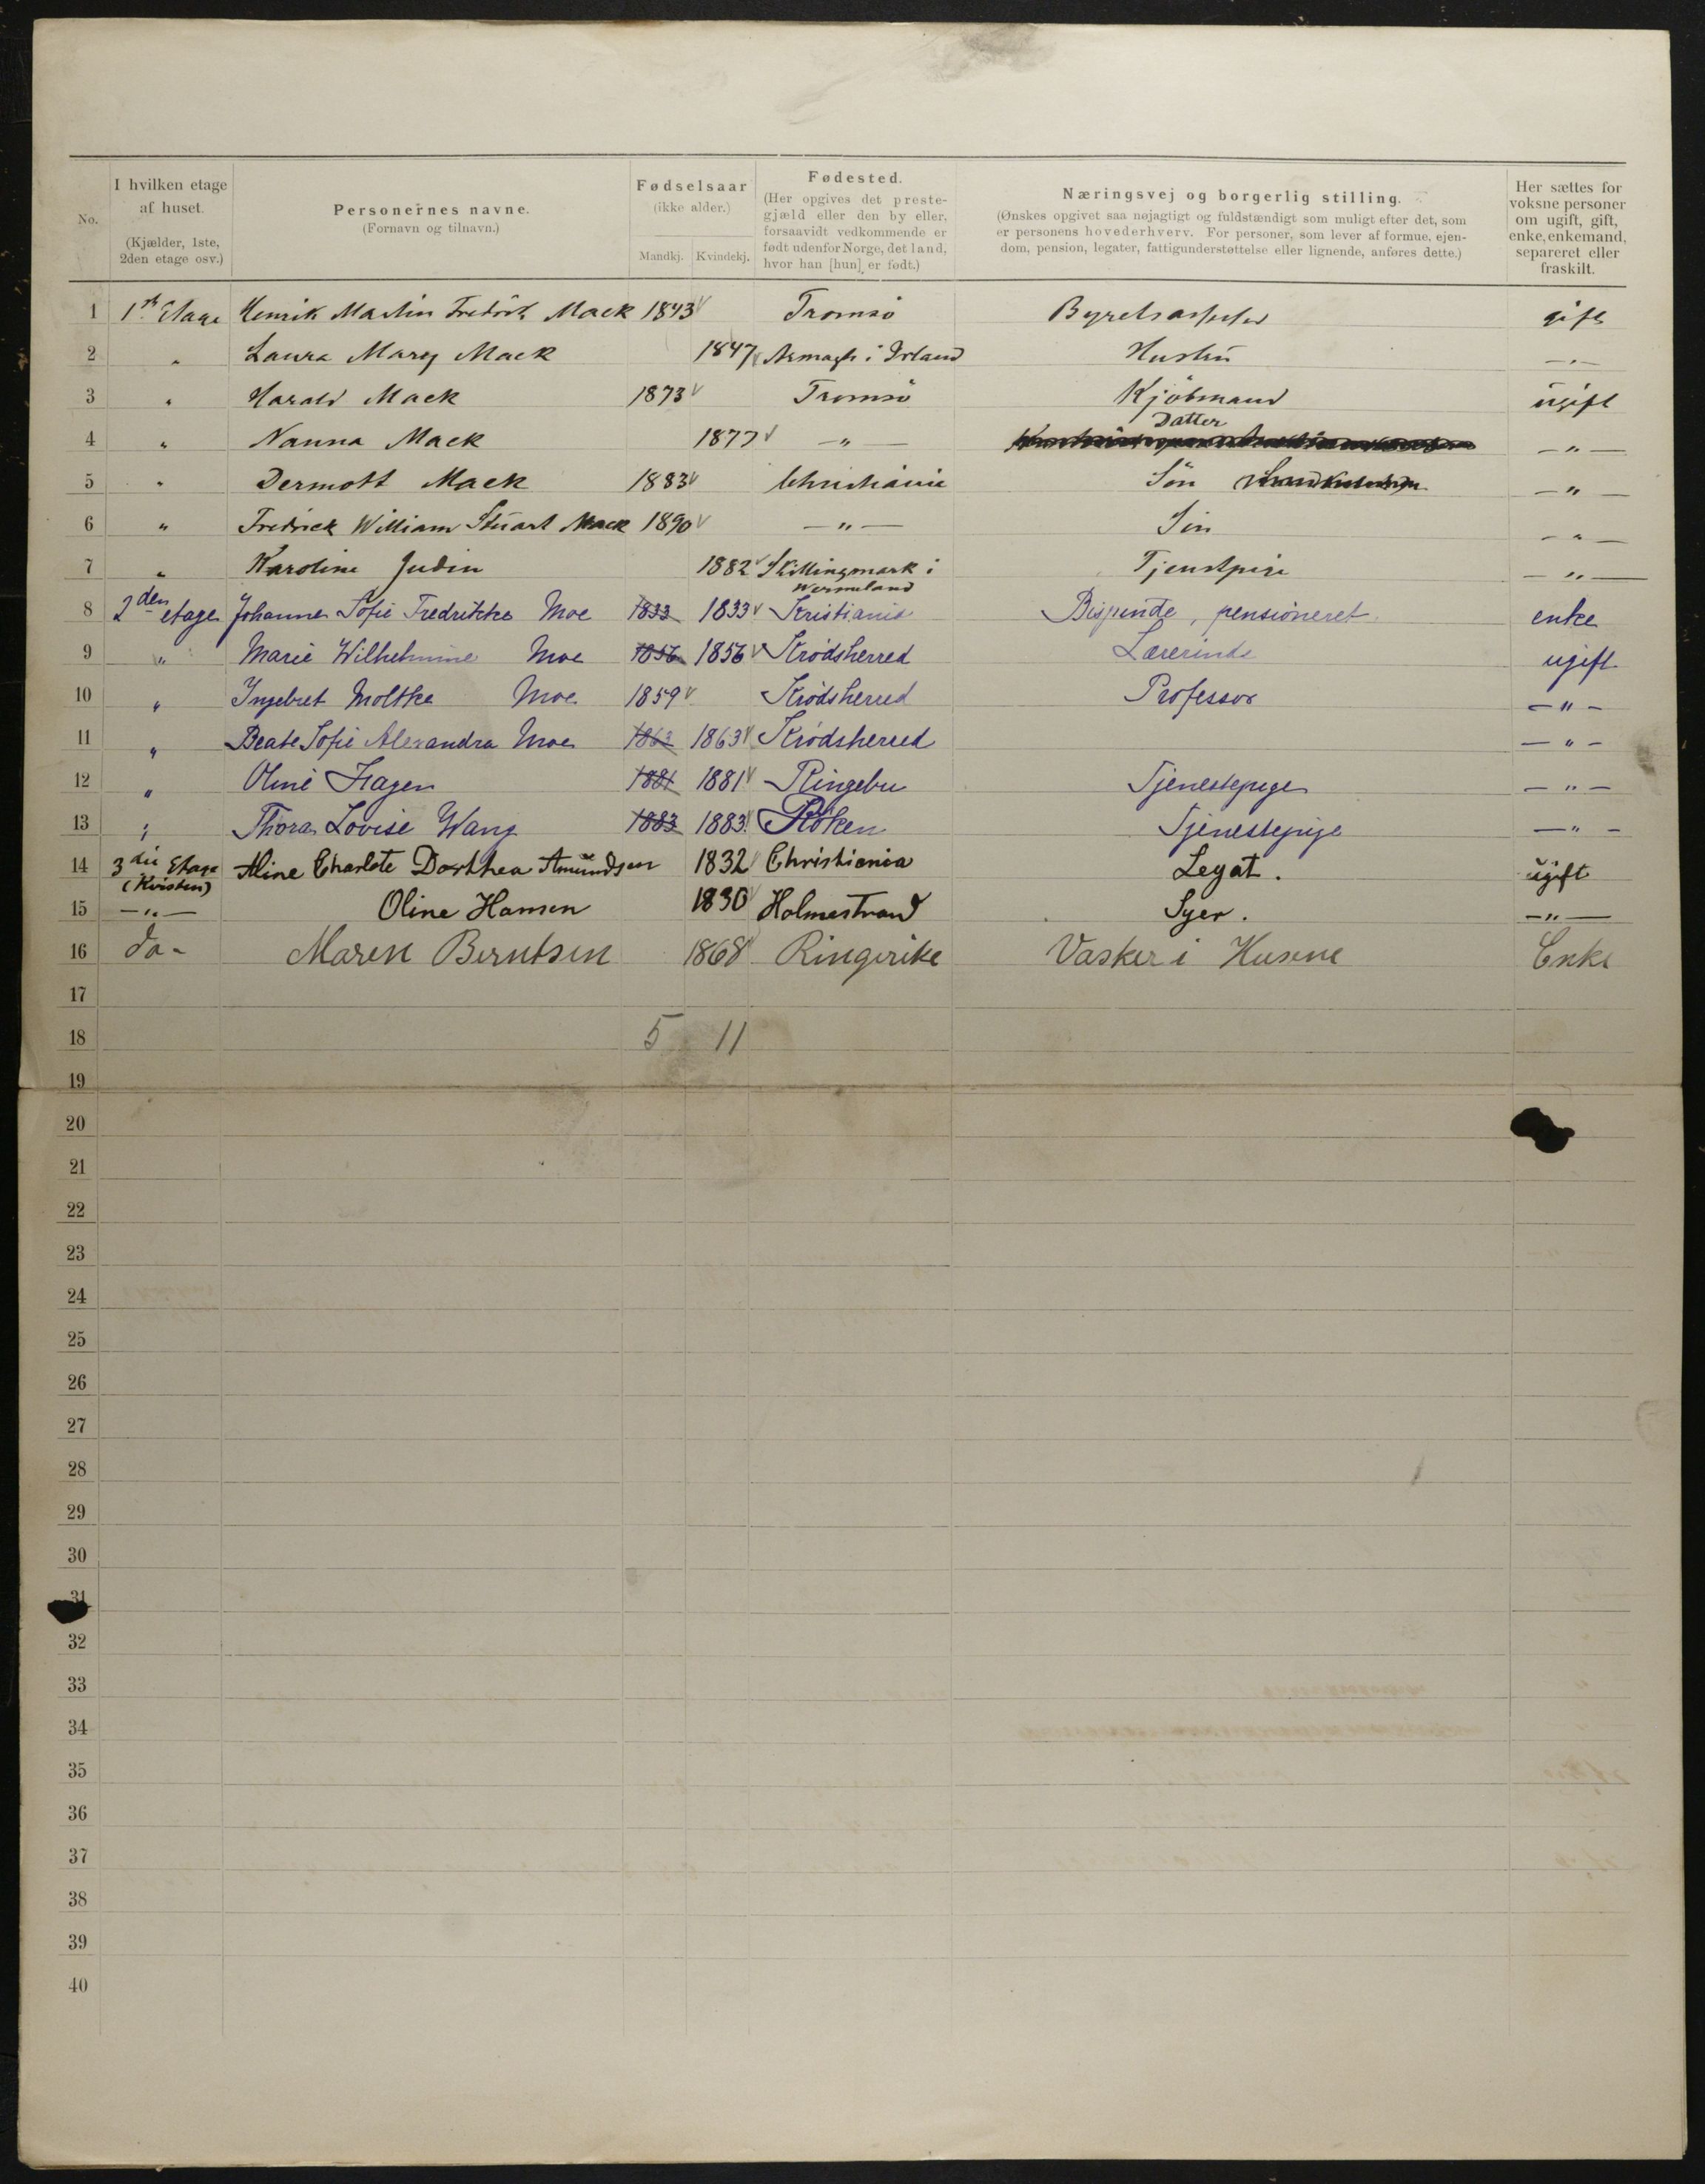 No. | I hvilken etage af huset. (Kjælder, 1ste, 2den etage osv.) | Personernes navne. (Fornavn og tilnavn.) | Fødselsaar (ikke alder.) Mandkj. Kvindekj. | Fødested. (Her opgives det prestegjæld eller den by eller, forsaavidt vedkommende er født udenfor Norge, det land, hvor han [hun] er født.) | Næringsvej og borgerlig stilling. (Ønskes opgivet saa nøjagtigt og fuldstændigt som muligt efter det, som er personens hovederhverv. For personer, som lever af formue, ejendom, pension, legater, fattigunderstøttelse eller lignende, anføres dette.) | Her sættes for voksne personer om ugift, gift, enke, enkemand, separeret eller fraskilt.
1 1ste Etage Henrik Martin Fredrik Mack 1843 Tromsö Byretsassessor gift
2 " Laura Mary Mack 1847 Armagh i Irland Hustru —"—
3 " Harald Mack 1873 Tromsö Kjöbmand ugift
4 " Nanna Mack 1877 —"— Datter —"—
5 " Dermott Mack 1883 Christiania Sön —"—
6 " Fredrick William Stuart Mack 1890 —"— Sön —"—
7 " Karoline Judin 1882 Skillingmark i Wermeland Tjenstpige —"—
8 2den etage Johanne Sofie Fredrikke Moe 1833 1833 Kristiania Bispinde, pensioneret. enke
9 " Marie Wilhelmine Moe 1856 1856 Krödsherred Lærerinde ugift
10 " Ingebret Moltke Moe 1859 Krödsherred Professor —"—
11 " Beate Sofie Alexandra Moe 1863 1863 Krödsherred —"—
12 " Oline Hagen 1881 1881 Ringebu Tjenestepige —"—
13 " Thora Lovise Wang 1883 1883 Röken Tjenestepige —"—
14 3die Etage (Kvisten) Aline Charlote Dorthea Amundsen 1832 Christiania Legat. ugift
15 —"— Oline Hansen 1830 Holmestrand Syer. —"—
16 do- Maren Berntsen 1868 Ringerike Vasker i Husene Enke
17
18 5 11
19
20
21
22
23
24
25
26
27
28
29
30
31
32
33
34
35
36
37
38
39
40